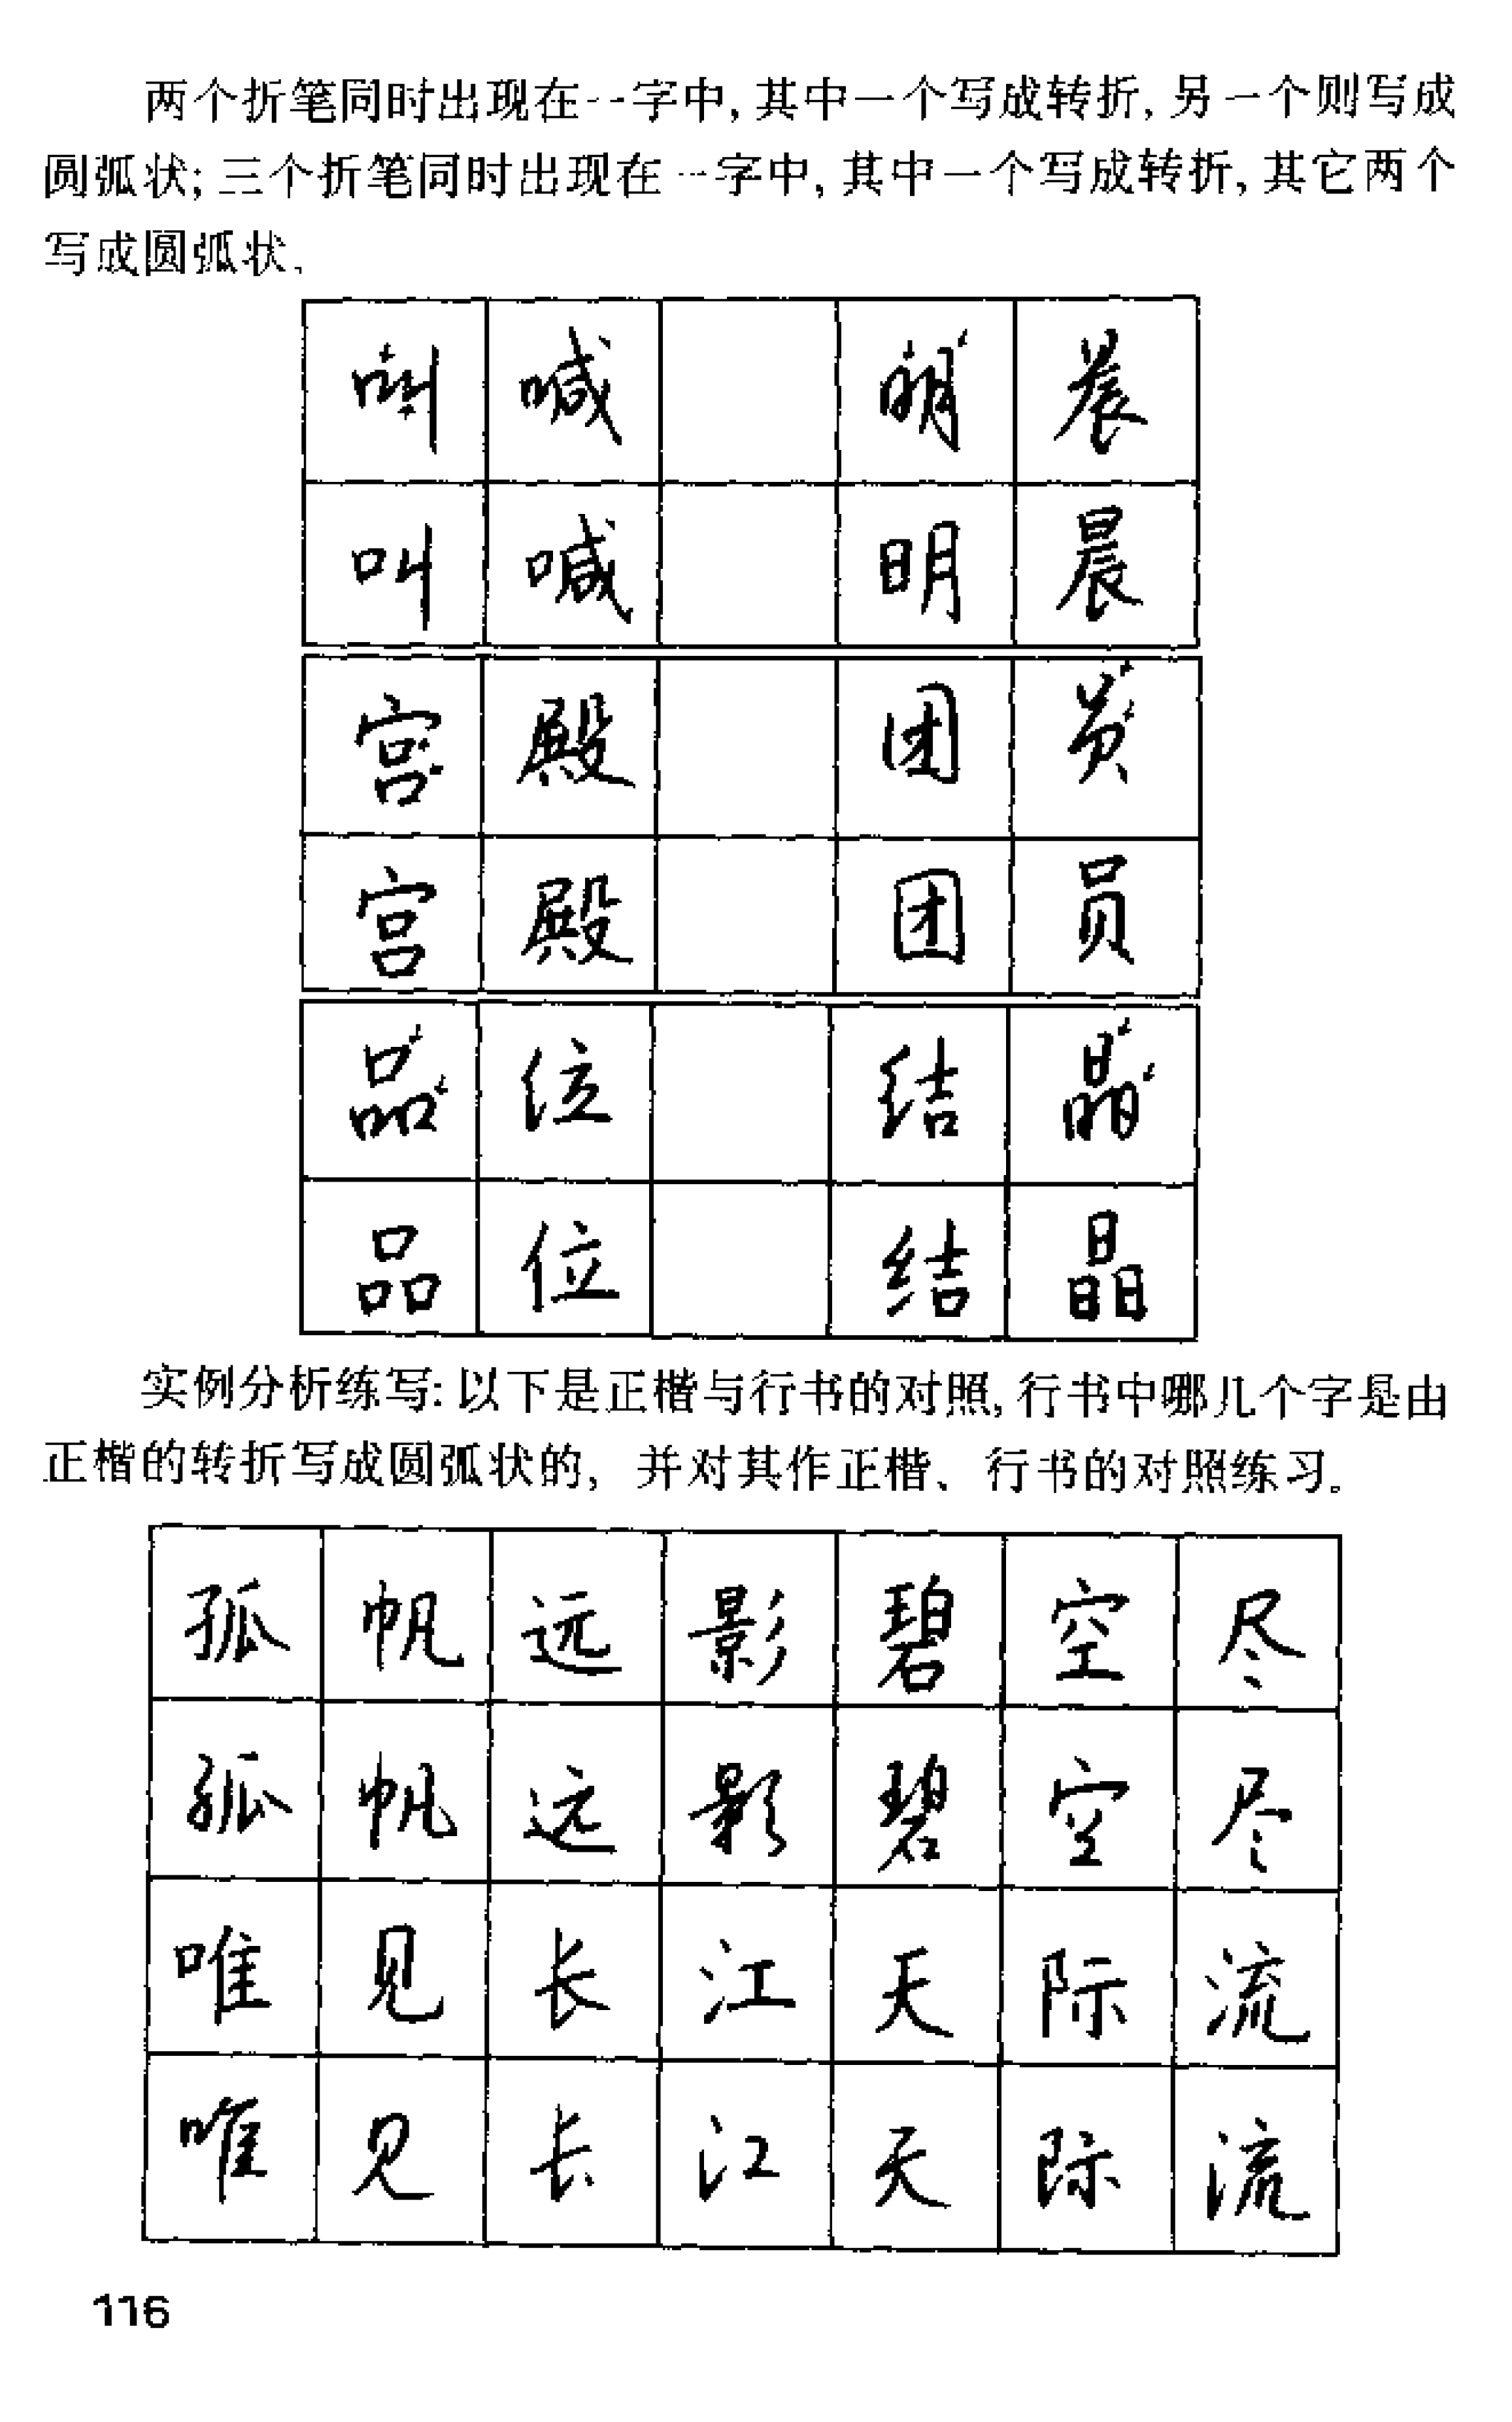 两个折笔同时出现在一字中,其中一个写成转折,另一个则写成
圆弧状;三个折笔同时出现在一字中,其中一个写成转折,其它两个
写成圆弧状.
叫 喊 明 晨
叫 喊 明 晨
宫 殿 团 员
宫 殿 团 员
品 位 结 晶
品 位 结 晶
实例分析练写:以下是正楷与行书的对照,行书中哪几个字是由
正楷的转折写成圆弧状的,并对其作正楷、行书的对照练习。
孤 帆 远 影 碧 空 尽
孤 帆 远 影 碧 空 尽
唯 见 长 江 天 际 流
唯 见 长 江 天 际 流
116